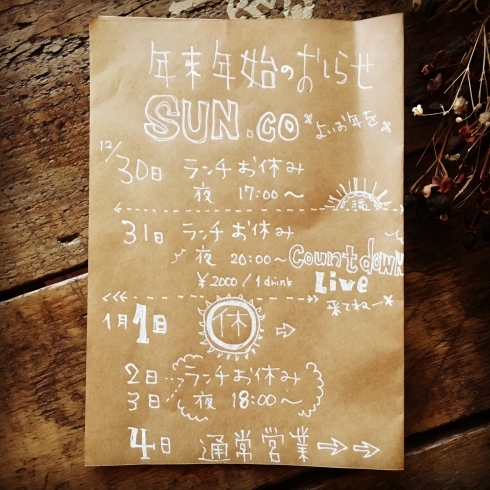 年末年始のおしらせ
SUN.CO *よいお年を*
12/30日 ランチお休み
夜 17:00〜
31日 ランチお休み
夜 20:00〜 Countdown
¥2000/1drink Live
来てねー*
1月1日 休 ⇨
2日 ランチお休み
3日 夜 18:00〜
4日 通常営業⇨⇨